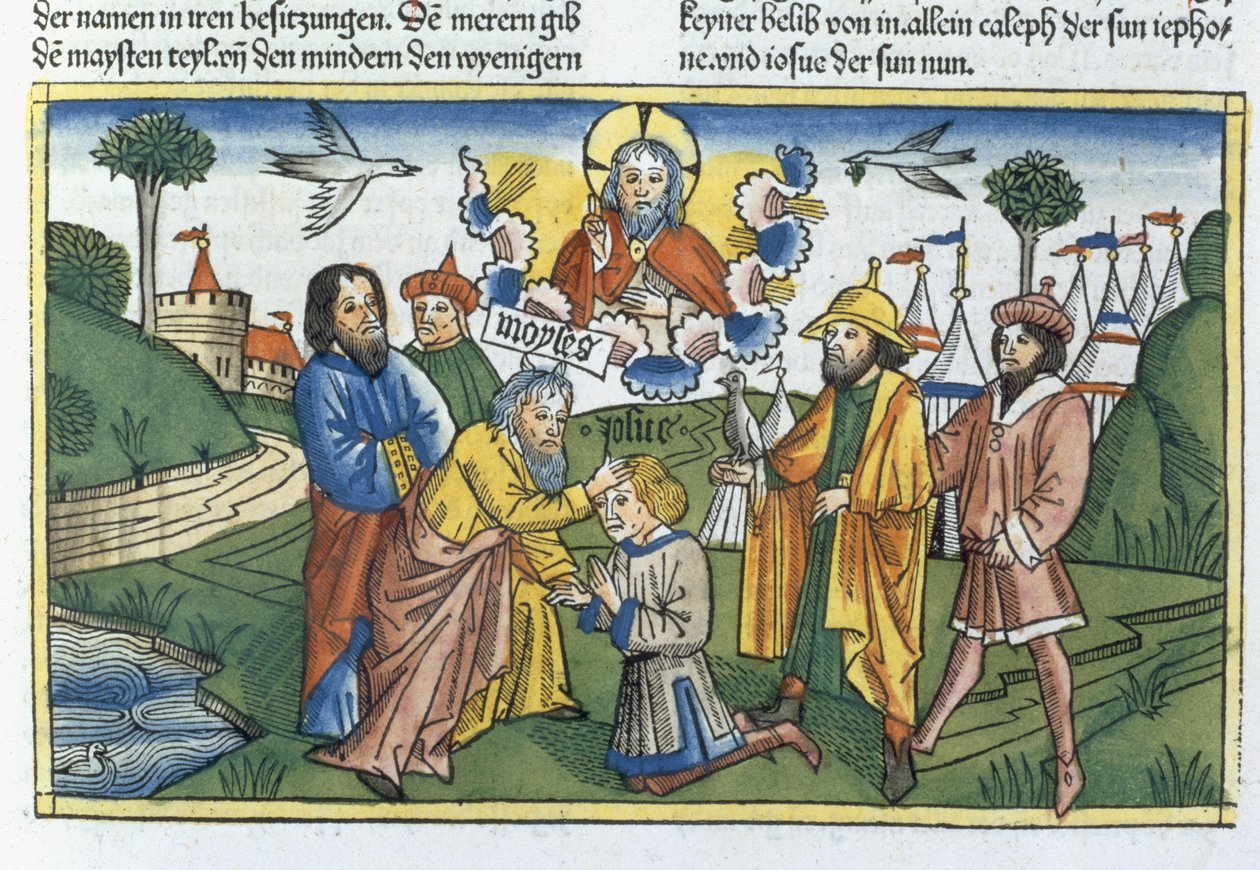 der namen in iren besitzungen. Dē merern gib
dē maysten teyl.vn̄ den mindern den wyenigern
keyner belib von in.allein caleph der sun iepho⸗
ne.vnd iosue der sun nun.
moyses
Josue